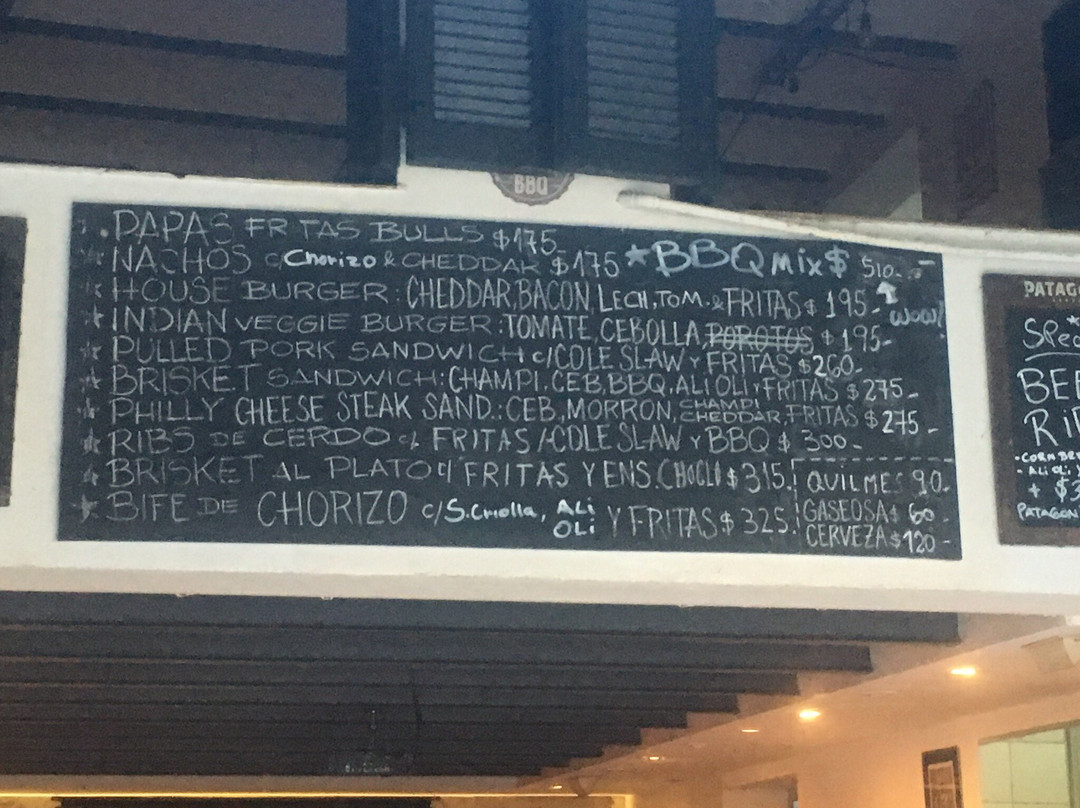 BBQ
PAPAS FRITAS BULLS $175
NACHOS c/Chorizo & CHEDDAR $175
★BBQ Mix $ 510.-
WOW!
HOUSE BURGER: CHEDDAR, BACON, LECH, TOM. & FRITAS $ 195-
INDIAN VEGGIE BURGER: TOMATE, CEBOLLA, POROTOS $ 195-
PULLED PORK SANDWICH c/COLE SLAW Y FRITAS $260-
BRISKET SANDWICH: CHAMPI. CEB, BBQ, ALI OLI Y FRITAS $ 275-
PHILLY CHEESE STEAK SAND.: CEB, MORRON, CHAMPI CHEDDAR, FRITAS $ 275-
RIBS DE CERDO c/ FRITAS /COLE SLAW Y BBQ $ 300-
BRISKET AL PLATO c/ FRITAS Y ENS. CHOCLO $ 315.
BIFE DE CHORIZO c/S.Criolla, ALi OLi Y FRITAS $ 325.
QUILMES 90-
GASEOSA $ 60-
CERVEZA $ 120-
PATAG
SPEC
BEE
RI
-CORN BRE
-ALi OLi,
+ $3
PATAGON